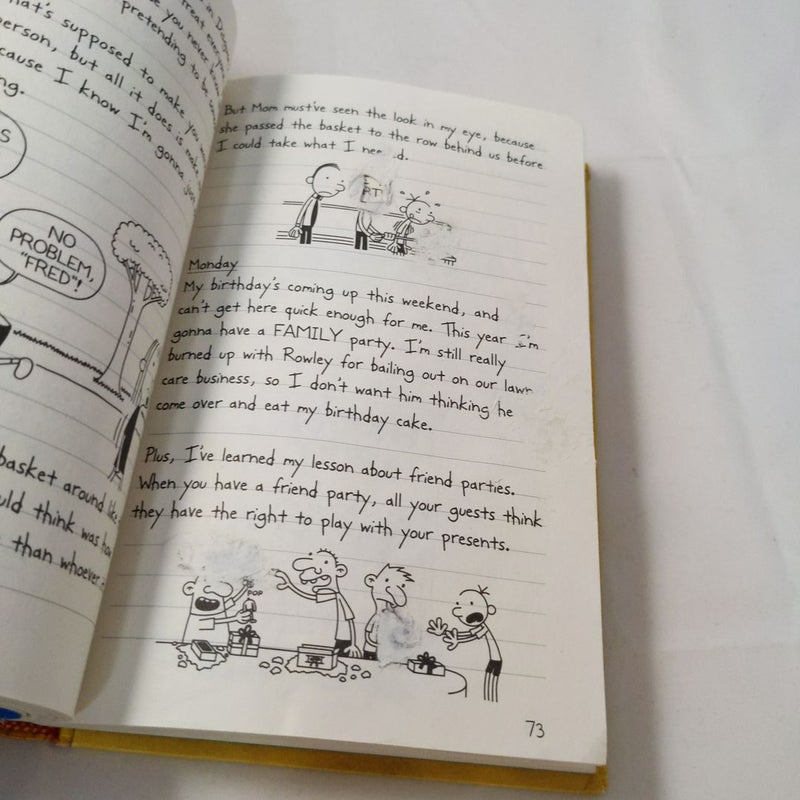 in D
treat everyone
e you never know
pretending to be
hat's supposed to make you
person, but all it does is make
cause I know I'm gonna just
ng.
S
NO
PROBLEM,
"FRED"!
basket around like
uld think was how
than whoever
But Mom must've seen the look in my eye, because
she passed the basket to the row behind us before
I could take what I need.
RT
Monday
My birthday's coming up this weekend, and
can't get here quick enough for me. This year I'm
gonna have a FAMILY party. I'm still really
burned up with Rowley for bailing out on our lawn
care business, so I don't want him thinking he
come over and eat my birthday cake.
Plus, I've learned my lesson about friend parties.
When you have a friend party, all your guests think
they have the right to play with your presents.
POP
73